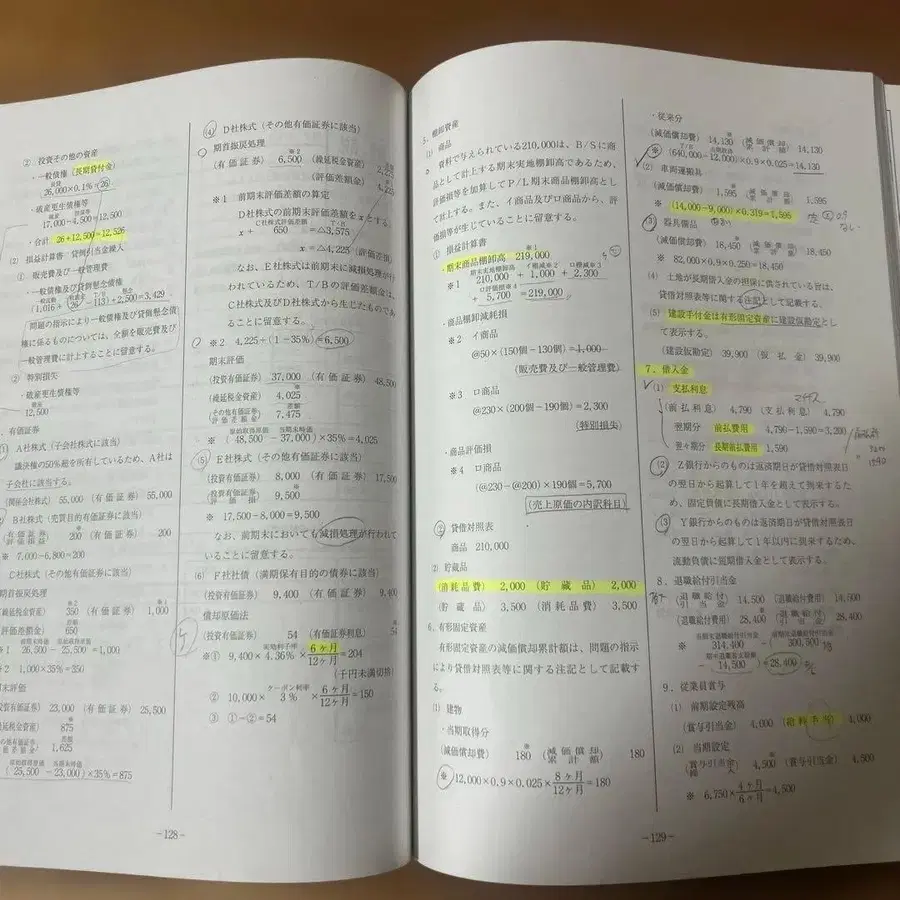 ② 投資その他の資産
・一般債権（長期貸付金）
長貸
26,000×0.1%=26
・破産更生債権等
17,000−4,500=12,500
・合計 26+12,500=12,526
(2) 損益計算書 貸倒引当金繰入
① 販売費及び一般管理費
一般債権及び貸倒懸念債権
(1,016+26−113)+2,500=3,429
問題の指示により一般債権及び貸倒懸念債
権に係るものについては、全額を販売費及び
一般管理費に計上することに留意する。
② 特別損失
・破産更生債権等
12,500
有価証券
A社株式（子会社株式に該当）
議決権の50％超を所有しているため、A社は
子会社に該当する。
（関係会社株式） 55,000 （有価証券） 55,000
B社株式（売買目的有価証券に該当）
200 （有価証券） 200
※ 7,000−6,800=200
C社株式（その他有価証券に該当）
繰延税金資産） 350 （有価証券） 1,000
評価差額金） 650
※1 26,500−25,500=1,000
※2 1,000×35%=350
末評価
投資有価証券） 23,000 （有価証券） 25,500
延税金資産） 875
1,625
取得原価 当期末時価
(25,500−23,000)×35%=875
(4) D社株式（その他有価証券に該当）
期首振戻処理
（有価証券） 6,500 （繰延税金資産） 2,275
（評価差額金） 4,225
※1 前期末評価差額の算定
D社株式の前期末評価差額をxとする。
C社株式評価差額 T/B
x+ 650 =△3,575
x=△4,225（評価差損）
なお、E社株式は前期末に減損処理が行わ
れているため、T/Bの評価差額金は、
C社株式及びD社株式から生じたものであ
ることに留意する。
※2 4,225÷(1−35%)=6,500
期末評価
（投資有価証券） 37,000 （有価証券） 48,500
（繰延税金資産） 4,025
（その他有価証券評価差額金） 7,475
取得原価 当期末時価
※ (48,500−37,000)×35%=4,025
(5) E社株式（その他有価証券に該当）
（投資有価証券） 8,000 （有価証券） 17,500
（投資有価証券評価損） 9,500
※ 17,500−8,000=9,500
なお、前期末においても減損処理が行われて
いることに留意する。
(6) F社社債（満期保有目的の債券に該当）
（投資有価証券） 9,400 （有価証券） 9,400
償却原価法
（投資有価証券） 54 （有価証券利息） 54
実効利子率
※① 9,400×4.36%×6ヶ月/12ヶ月=204
（千円未満切捨）
クーポン利率
② 10,000×3%×6ヶ月/12ヶ月=150
③ ①−②=54
−128−
5. 棚卸資産
(1) 商品
資料で与えられている210,000は、B/Sに商
品として計上する期末実地棚卸高であるため、
評価損等を加算してP/L期末商品棚卸高とし
て計上する。また、イ商品及びロ商品から、評
価損等が生じていることに留意する。
① 損益計算書
・期末商品棚卸高 219,000
期末実地棚卸高 イ棚減※2 ロ棚減※3
※1 210,000+1,000+2,300
ロ評価損※4
+5,700=219,000
・商品棚卸減耗損
※2 イ商品
@50×(150個−130個)=1,000
（販売費及び一般管理費）
※3 ロ商品
@230×(200個−190個)=2,300
（特別損失）
・商品評価損
※4 ロ商品
(@230−@200)×190個=5,700
（売上原価の内訳科目）
② 貸借対照表
商品 210,000
(2) 貯蔵品
（消耗品費） 2,000 （貯蔵品） 2,000
（貯蔵品） 3,500 （消耗品費） 3,500
6. 有形固定資産
有形固定資産の減価償却累計額は、問題の指示
により貸借対照表等に関する注記として記載す
る。
(1) 建物
・当期取得分
（減価償却費） 180 （減価償却累計額） 180
※ 12,000×0.9×0.025×8ヶ月/12ヶ月=180
・従来分
（減価償却費） 14,130 （減価償却累計額） 14,130
T/B 当期取得
※ (640,000−12,000)×0.9×0.025=14,130
(2) 車両運搬具
（減価償却費） 1,595 （減価償却累計額） 1,595
※ (14,000−9,000)×0.319=1,595
(3) 器具備品
（減価償却費） 18,450 （減価償却累計額） 18,450
※ 82,000×0.9×0.250=18,450
(4) 土地が長期借入金の担保に供されている旨は、
貸借対照表等に関する注記として記載する。
(5) 建設手付金は有形固定資産に建設仮勘定とし
て表示する。
（建設仮勘定） 39,900 （仮払金） 39,900
7. 借入金
(1) 支払利息
マイナス
（前払利息） 4,790 （支払利息） 4,790
翌期分 前払費用 4,790−1,590=3,200
翌々期分 長期前払費用 1,590
(2) Z銀行からのものは返済期日が貸借対照表日
の翌日から起算して1年を超えて到来するた
め、固定負債に長期借入金として表示する。
(3) Y銀行からのものは返済期日が貸借対照表日
の翌日から起算して1年以内に到来するため、
流動負債に短期借入金として表示する。
8. 退職給付引当金
（退職給付引当金） 14,500 （退職給付費用） 14,500
（退職給付費用） 28,400 （退職給付引当金） 28,400
※ 314,400−300,500
14,500=28,400
9. 従業員賞与
(1) 前期設定残高
（賞与引当金） 4,000 （給料手当） 4,000
(2) 当期設定
（賞与引当金繰入） 4,500 （賞与引当金） 4,500
※ 6,750×4ヶ月/6ヶ月=4,500
−129−